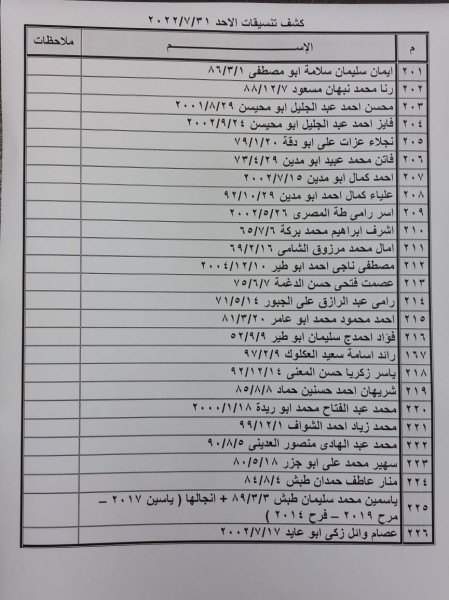 كشف تنسيقات الاحد ٢٠٢٢/٧/٣١
م الإســـــم ملاحظات
٢٠١ ايمان سليمان سلامة ابو مصطفى ٨٦/٣/١
٢٠٢ رنا محمد نبهان مسعود ٨٨/١٢/٧
٢٠٣ محسن احمد عبد الجليل ابو محيسن ٢٠٠١/٨/٢٩
٢٠٤ فايز احمد عبد الجليل ابو محيسن ٢٠٠٢/٩/٢٤
٢٠٥ نجلاء عزات على ابو دقة ٧٩/١/٢٠
٢٠٦ فاتن محمد عبيد ابو مدين ٧٣/٤/٢٩
٢٠٧ احمد كمال ابو مدين ٢٠٠٢/٧/١٥
٢٠٨ علياء كمال احمد ابو مدين ٩٢/١٠/٢٩
٢٠٩ اسر رامى طة المصرى ٢٠٠٢/٥/٢٦
٢١٠ اشرف ابراهيم محمد بركة ٦٥/٧/٦
٢١١ امال محمد مرزوق الشامى ٦٩/٢/١٦
٢١٢ مصطفى ناجى احمد ابو طير ٢٠٠٤/١٢/١٠
٢١٣ عصمت فتحى حسن الدغمة ٧٥/٦/٧
٢١٤ رامى عبد الرازق على الجبور ٧١/٥/١٤
٢١٥ احمد محمود محمد ابو عامر ٨١/٣/٢٠
٢١٦ فؤاد احمدج سليمان ابو طير ٥٢/٩/٩
١٦٧ رائد اسامة سعيد العكلوك ٩٧/٢/٩
٢١٨ ياسر زكريا حسن المغنى ٩٢/١٢/١٤
٢١٩ شريهان احمد حسنين حماد ٨٥/٨/٨
٢٢٠ محمد عبد الفتاح محمد ابو ريدة ٢٠٠٠/١/١٨
٢٢١ محمد زياد احمد الشواف ٩٩/١٢/١
٢٢٢ محمد عبد الهادى منصور العدينى ٩٠/٨/٥
٢٢٣ سهير محمد على ابو جزر ٨٠/٥/١٨
٢٢٤ منار عاطف حمدان طبش ٨٤/٨/٤
٢٢٥ ياسمين محمد سليمان طبش ٨٩/٣/٣ + انجالها ( ياسين ٢٠١٧ –
مرح ٢٠١٩ – فرح ٢٠١٤ )
٢٢٦ عصام وائل زكى ابو عايد ٢٠٠٢/٧/١٧